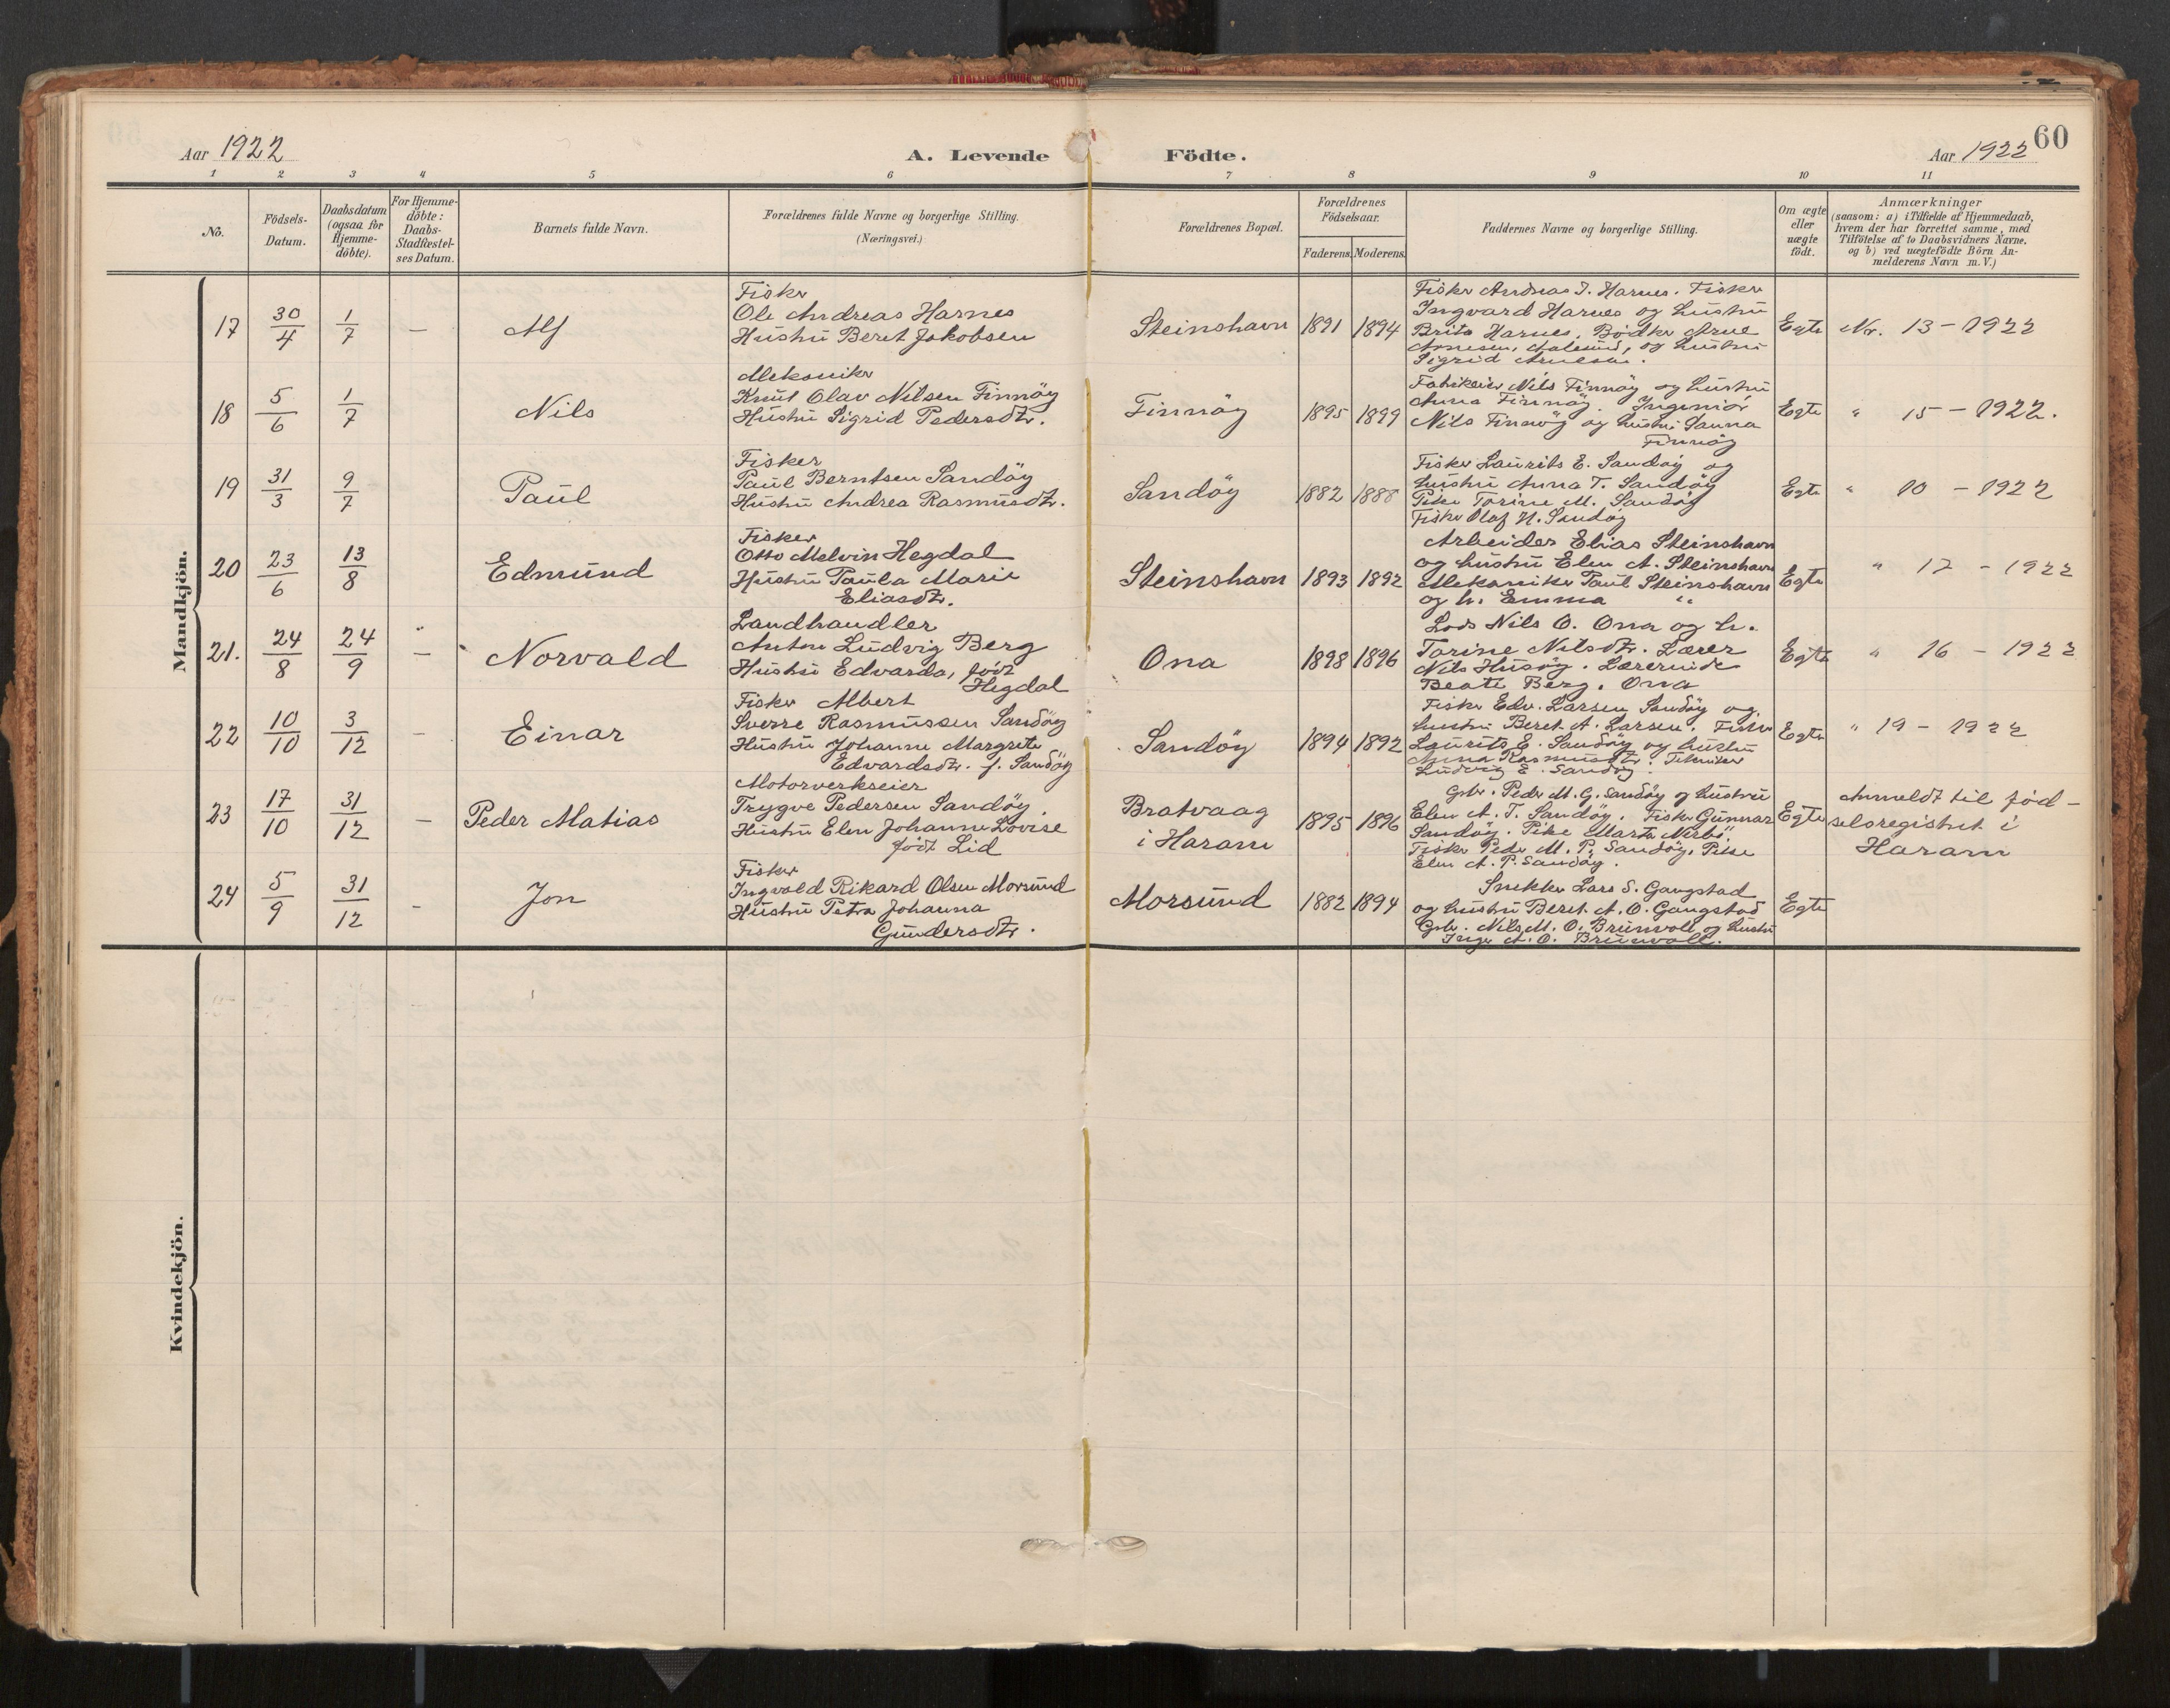 60
Aar 1922
A. Levende Födte.
Aar 1922
1 2 3 4 5 6 7 8 9 10 11
No.
Födsels-
Datum.
Daabsdatum
(ogsaa for
Hjemme-
döbte).
For Hjemme-
döbte:
Daabs-
Stadfæstel-
ses Datum.
Barnets fulde Navn.
Forældrenes fulde Navne og borgerlige Stilling.
(Næringsvei.)
Forældrenes Bopæl.
Forældrenes
Födselsaar.
Faderens. Moderens.
Faddernes Navne og borgerlige Stilling.
Om ægte
eller
uægte
födt.
Anmærkninger
(saasom: a) i Tilfælde af Hjemmedaab,
hvem der har forrettet samme, med
Tilföielse af to Daabsvidners Navne.
og b) ved uægtefödte Börn An-
melderens Navn m. V.)
Mandkjön.
17 30/4 1/7 — Alf
Fisker
Ole Andreas Harnes
Hustru Beret Jakobsen
Steinshavn 1891 1894
Fisker Andreas J. Harnes. Fisker
Ingvard Harnes og hustru
Brita Harnes. Bødker Arne
Arnesen, Aalesund, og hustru
Sigrid Arnesen.
Egte Nr. 13 - 1922
18 5/6 1/7 Nils
Mekaniker
Knut Olav Nilsen Finnöy
Hustru Sigrid Pedersdtr.
Finnöy 1895 1899
Fabrikeier Nils Finnöy og hustru
Anna Finnöy. Ingeniör
Nils Finnöy og hustru Sanna
Finnöy
Egte " 15 - 1922.
19 31/3 9/7 Paul
Fisker
Paul Berntsen Sandöy
Hustru Andrea Rasmusdtr.
Sandöy 1882 1888
Fisker Laurits E. Sandöy og
hustru Anna T. Sandöy
Pike Torine M. Sandöy
Fisker Olaf N. Sandöy
Egte " 10 - 1922
20 23/6 13/8 Edmund
Fisker
Otto Melvin Hegdal
Hustru Paula Marie
Eliasdtr.
Steinshavn 1893 1892
Arbeider Elias Steinshavn
og hustru Elen A. Steinshavn
Mekaniker Paul Steinshavn
og h. Emma "
Egte " 17 - 1922
21. 24/8 24/9 — Norvald
Landhandler
Anton Ludvig Berg
Hustru Edvarda, født
Hegdal
Ona 1898 1896
Lods Nils O. Ona og h.
Torine Nilsdtr. Lærer
Nils Husöy. Lærerinde
Beate Berg. Ona
Egte " 16 - 1922
22 10/10 3/12 — Einar
Fisker Albert
Sverre Rasmussen Sandöy
Hustru Johanne Margrete
Edvardsdtr. f. Sandöy
Sandöy 1894 1892
Fisker Edv. Larsen Sandöy og
hustru Beret A. Larsen. Fisker
Laurits E. Sandöy og hustru
Anna Rasmusdtr.
Ludvig E. Sandöy.
Egte " 19 - 1922
23 17/10 31/12 — Peder Matias
Motorverkseier
Trygve Pedersen Sandöy
Hustru Elen Johanne Lovise
født Lid
Bratvaag
i Haram
1895 1896
Gbr. Peder M. G. Sandöy og hustru
Elen A. T. Sandöy. Fisker Gunnar
Sandöy. Pike Marta Nerbö.
Fisker Peder M. P. Sandöy, Pike
Elen A. P. Sandöy.
Egte
Anmeldt til fød-
selsregistret i
Haram
24 5/9 31/12 - Jon
Fisker
Ingvald Rikard Olsen Morsund
Hustru Petra Johanna
Gundersdtr.
Morsund 1882 1894
Snekker Lars S. Gangstad
og hustru Beret A. O. Gangstad
Gbr. Nils M. O. Brunvoll og hustru
Inga A. O. Brunvoll.
Egte
Kvindekjön.